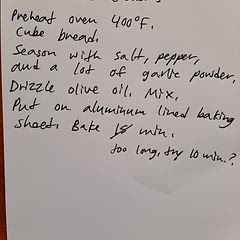 Preheat oven 400°F.
Cube bread.
Season with salt, pepper,
and a lot of garlic powder,
Drizzle olive oil. Mix.
Put on aluminum lined baking
sheet. Bake 15 min.
too long, try 10 min.?